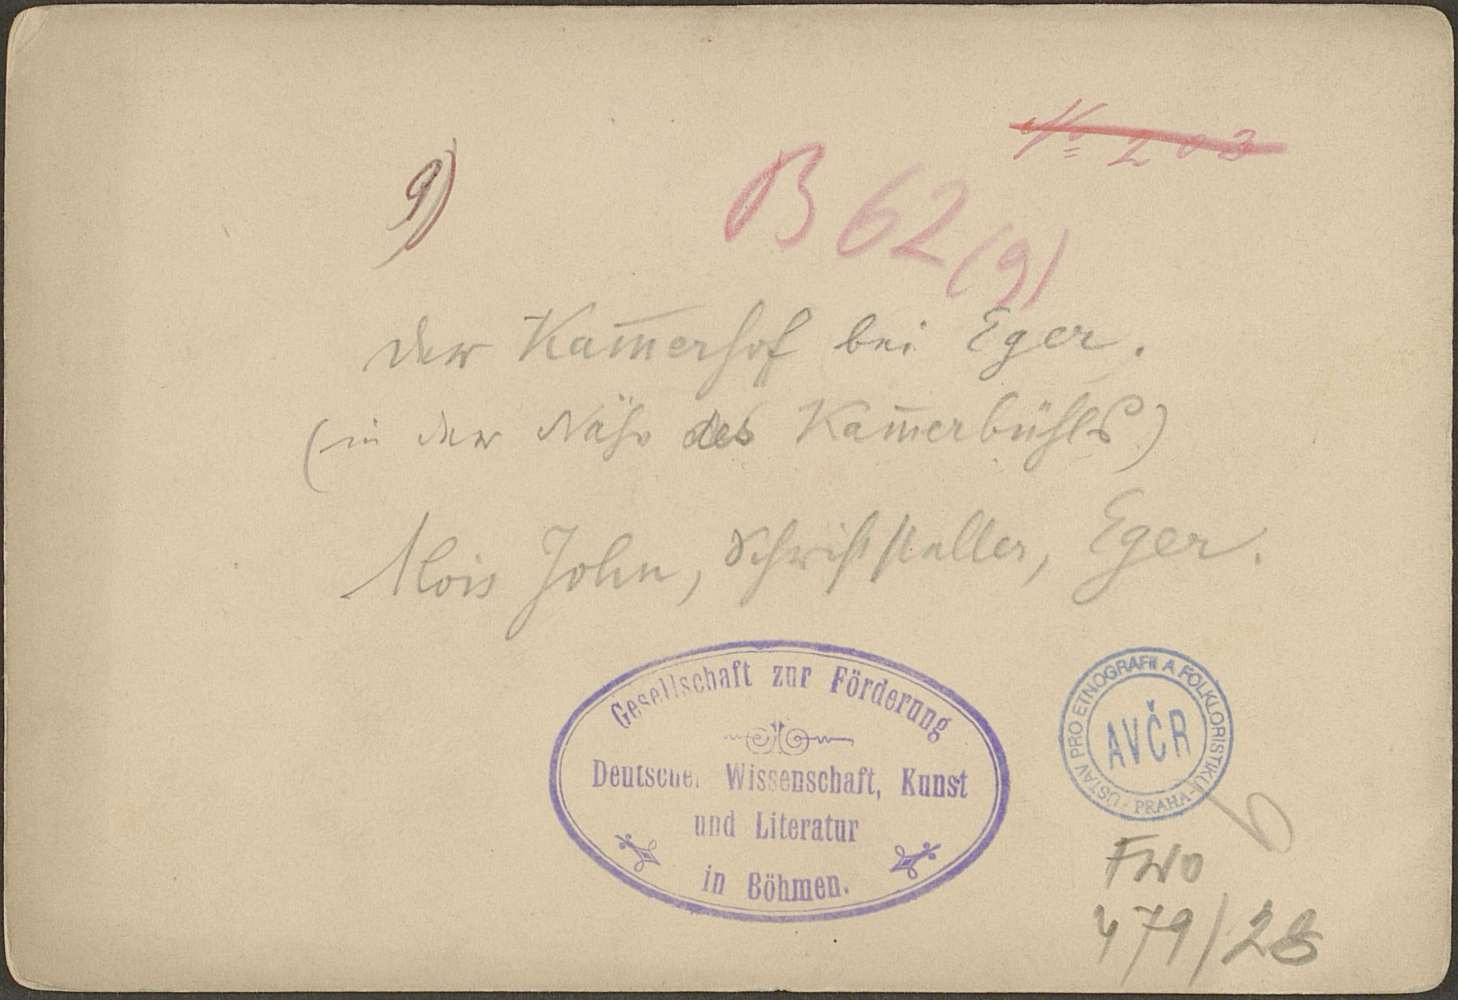 № 203
9)
B 62 (9)
Der Kam̅erhof bei Eger.
(in der Nähe des Kam̅erbühls)
Alois John, Schriftsteller, Eger.
Gesellschaft zur Förderung
Deutscher Wissenschaft, Kunst
und Literatur
in Böhmen.
ÚSTAV PRO ETNOGRAFII A FOLKLORISTIKU
AVČR
PRAHA
FWO
479/28